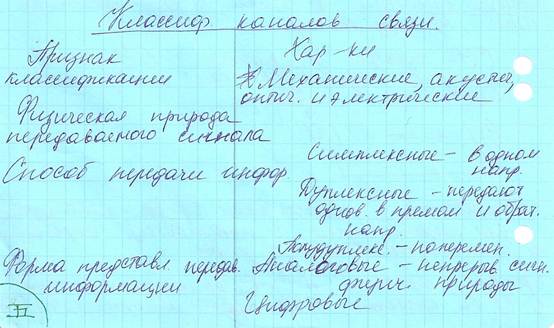 Классиф каналов связи.
Признак
классификации
Физическая природа
передаваемого сигнала
Способ передачи инфор
Форма представл. передав.
информации
Хар-ки
Механические, акусти,
оптич. и электрические
Симплексные - в одном
напр.
Дуплексные - передают
однов. в прямом и обрат.
напр.
Полудуплекс. - поперемен.
Аналоговые - непрерыв. сигн.
физич. природы
Цифровые